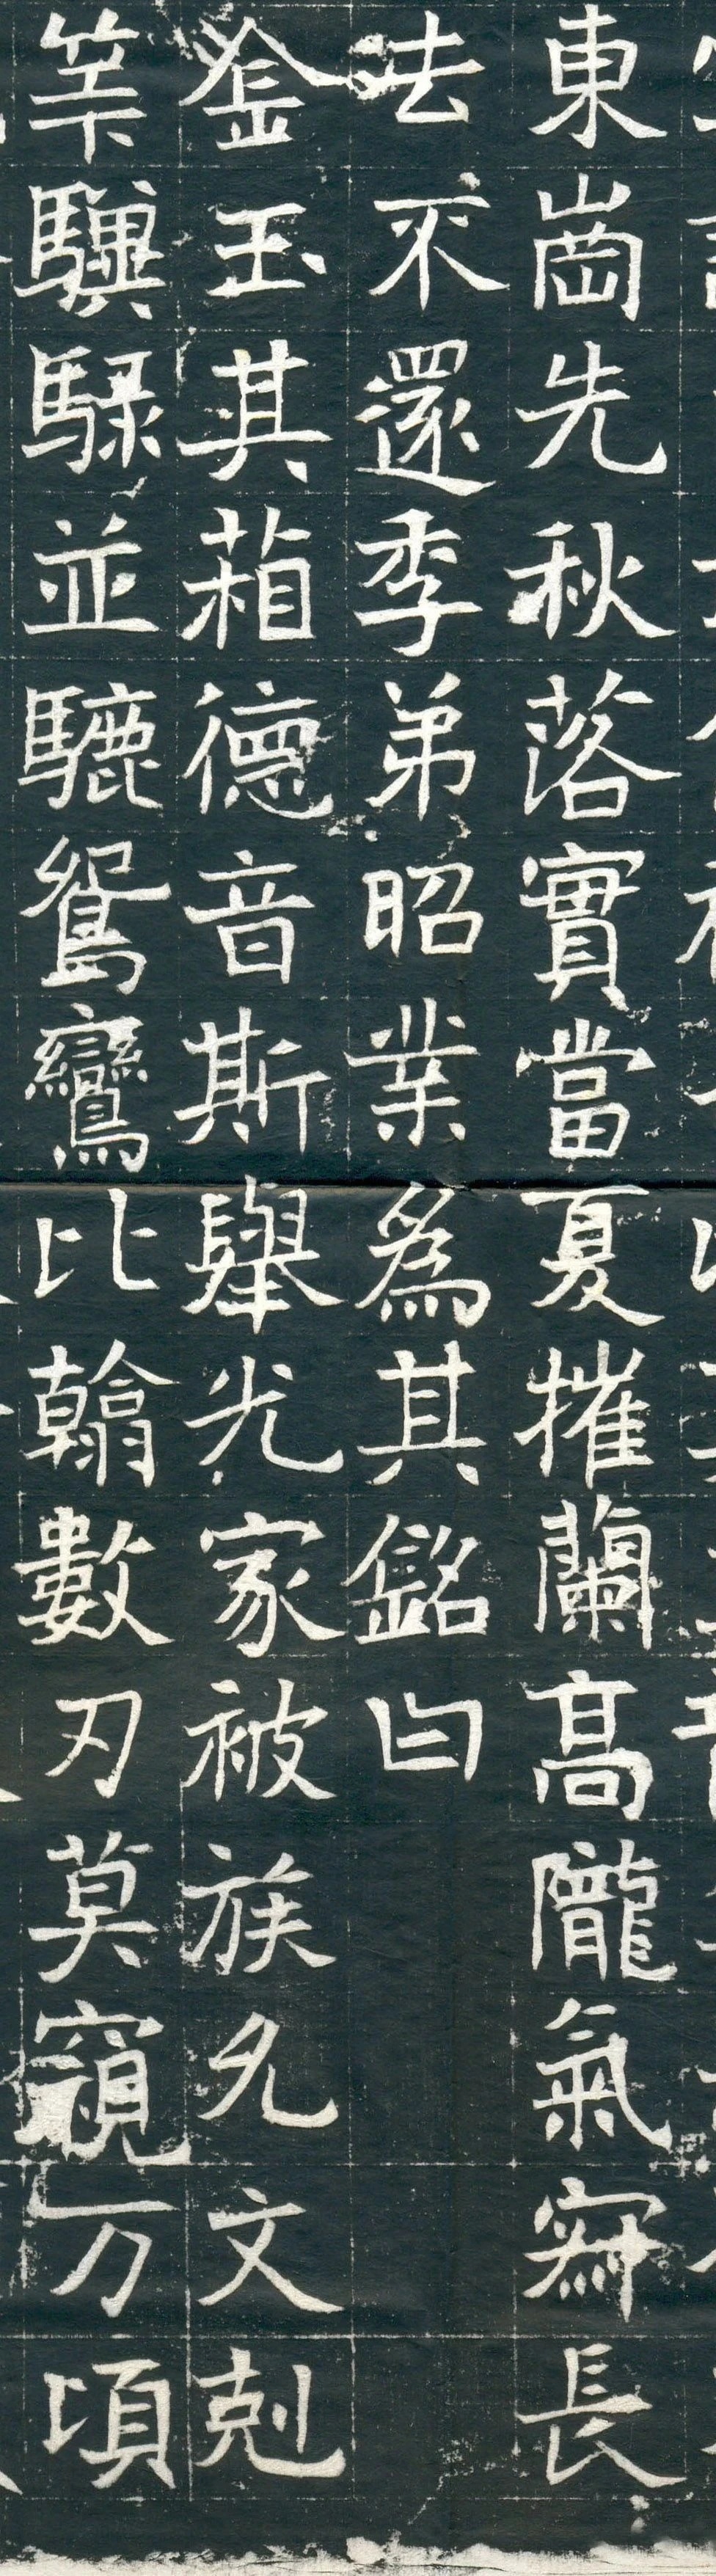 東崗先秋落實當夏摧蘭髙隴氣寂長
去不還季弟昭業為其銘曰
金玉其葙德音斯舉光家被族允文剋
筭驥騄並驪鴛鸞比翰數刃莫窺万頃